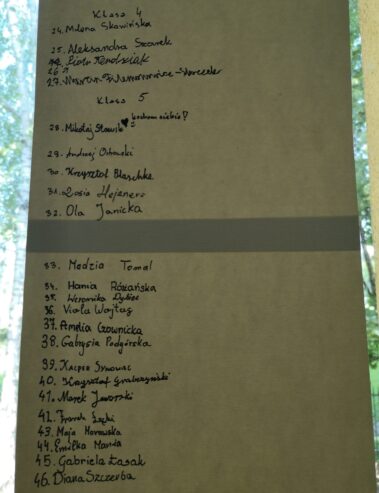 Klasa 4
24. Milena Skowińska
25. Aleksandra Szarek
26. Piotr
27.
Klasa 5
28. Mikołaj Słowik ♥ kocham siebie!
29. Andrzej Ostrowski
30. Krzysztof Blaschke
31. Zosia Hejenero
32. Ola Janicka
33. Madzia Tomal
34. Hania Różańska
35. Weronika Dybiec
36. Viola Wojtas
37. Amelia Czownicka
38. Gabrysia Podgórska
39. Kacper Synowiec
40. Krzysztof Grabczyński
41. Marek Jaworski
42. Franek Łącki
43. Maja Morawska
44. Emilka Mania
45. Gabriela Łasak
46. Diana Szczerba